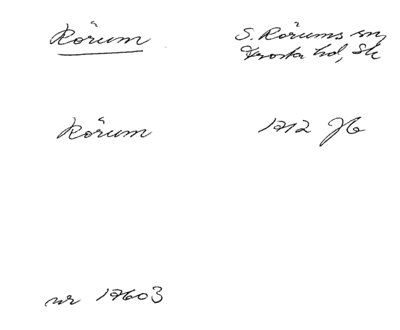 Rörum
S. Rörums sn,
Frosta hd, Sk
Rörum
1712 Jb
nr 17603